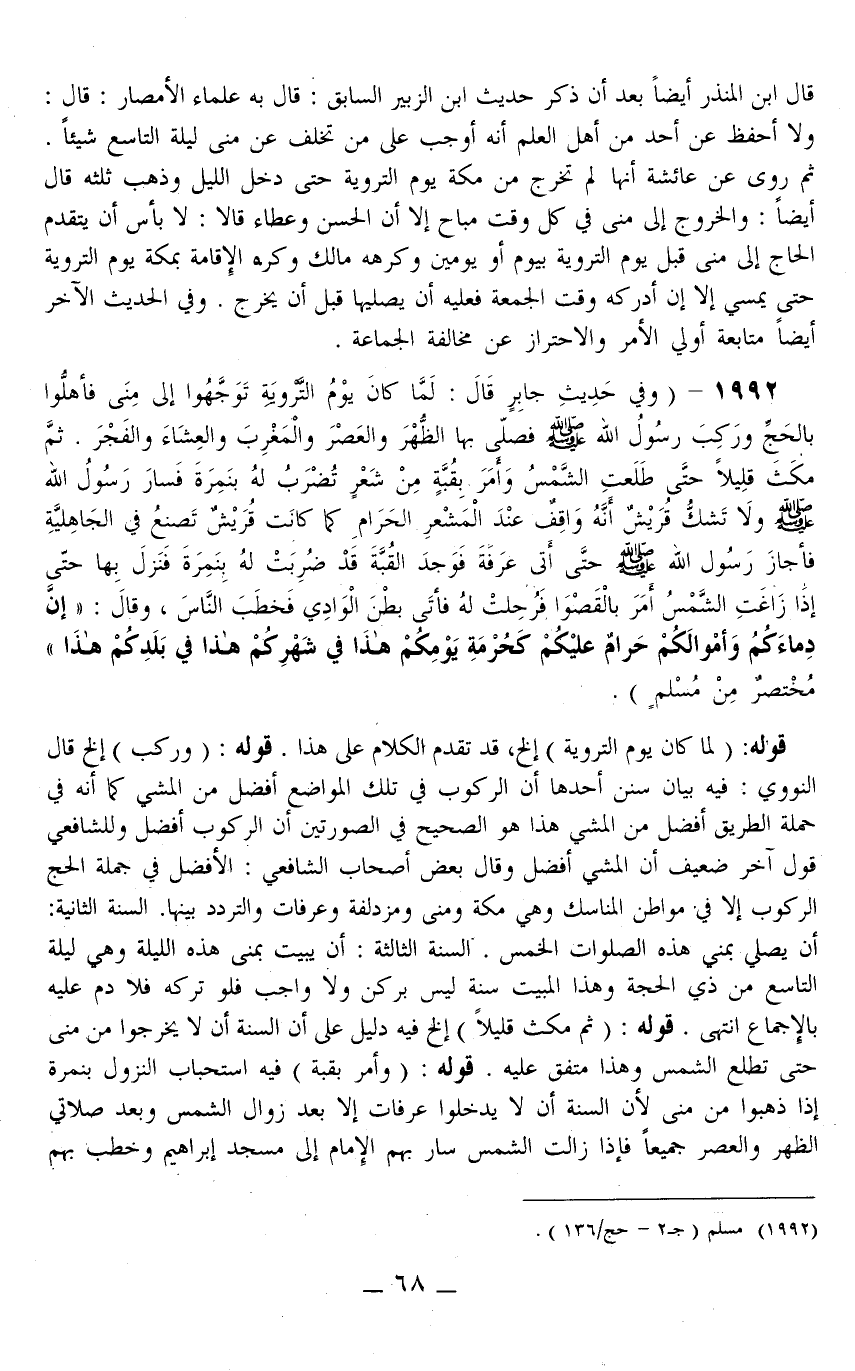 قال ابن المنذر أيضاً بعد أن ذكر حديث ابن الزبير السابق : قال به علماء الأمصار : قال :
ولا أحفظ عن أحد من أهل العلم أنه أوجب على من تخلف عن منى ليلة التاسع شيئاً .
ثم روى عن عائشة أنها لم تخرج من مكة يوم التروية حتى دخل الليل وذهب ثلثه قال
أيضاً : والخروج إلى منى في كل وقت مباح إلا أن الحسن وعطاء قالا : لا بأس أن يتقدم
الحاج إلى منى قبل يوم التروية بيوم أو يومين وكرهه مالك وكره الإقامة بمكة يوم التروية
حتى يمسي إلا إن أدركه وقت الجمعة فعليه أن يصليها قبل أن يخرج . وفي الحديث الآخر
أيضاً متابعة أولي الأمر والاحتراز عن مخالفة الجماعة .
١٩٩٢ – ( وفي حَدِيثِ جابِرٍ قَالَ : لَمَّا كانَ يوْمُ التَّرْوِيَةِ تَوَجَّهُوا إلى مِنَى فأهلُّوا
بالحَجِّ ورَكِبَ رسُولُ الله ﷺ فصلَّى بها الظُّهْرَ والعَصْرَ والْمَغْرِبَ والعِشَاءَ والفَجْرَ . ثمَّ
مكَثَ قلِيلاً حتَّى طَلَعتِ الشَّمْسُ وَأمَرَ بِقُبَّةٍ مِنْ شَعْرٍ تُضْرَبُ لهُ بنَمِرَةَ فَسارَ رَسُولُ الله
ﷺ ولَا تَشكُّ قُرَيْشٌ أنَّهُ وَاقِفٌ عنْدَ الْمَشْعرِ الحَرَامِ كما كانَت قُرَيْشٌ تَصنعُ في الجَاهليَّةِ
فأجازَ رَسُول الله ﷺ حتَّى أتى عَرفَةَ فَوَجدَ القُبَّةَ قَدْ ضُرِبَتْ لهُ بِنَمِرَةَ فَنزلَ بِها حتّى
إذَا زَاغَتِ الشَّمْسُ أمَرَ بالْقَصْوَا فَرُحِلتْ لهُ فأتَى بطْنَ الْوَادِي فَخطَبَ النَّاسَ ، وقالَ : « إنَّ
دِماءَكُمْ وَأمْوالَكُمْ حَرامٌ عليْكُمْ كَحُرْمَةِ يَوْمِكُمْ هٰذَا في شَهْرِكُمْ هٰذا في بَلَدِكُمْ هٰذَا »
مُخْتصرٌ مِنْ مُسْلمٍ ) .
قوله: ( لما كان يوم التروية ) إلخ، قد تقدم الكلام على هذا . قوله : ( وركب ) إلخ قال
النووي : فيه بيان سنن أحدها أن الركوب في تلك المواضع أفضل من المشي كما أنه في
حملة الطريق أفضل من المشي هذا هو الصحيح في الصورتين أن الركوب أفضل وللشافعي
قول آخر ضعيف أن المشي أفضل وقال بعض أصحاب الشافعي : الأفضل في جملة الحج
الركوب إلا في مواطن المناسك وهي مكة ومنى ومزدلفة وعرفات والتردد بينها. السنة الثانية:
أن يصلي بمني هذه الصلوات الخمس . السنة الثالثة : أن يبيت بمنى هذه الليلة وهي ليلة
التاسع من ذي الحجة وهذا المبيت سنة ليس بركن ولا واجب فلو تركه فلا دم عليه
بالإجماع انتهى . قوله : ( ثم مكث قليلاً ) إلخ فيه دليل على أن السنة أن لا يخرجوا من منى
حتى تطلع الشمس وهذا متفق عليه . قوله : ( وأمر بقبة ) فيه استحباب النزول بنمرة
إذا ذهبوا من منى لأن السنة أن لا يدخلوا عرفات إلا بعد زوال الشمس وبعد صلاتي
الظهر والعصر جميعاً فإذا زالت الشمس سار بهم الإمام إلى مسجد إبراهيم وخطب بهم
(١٩٩٢) مسلم ( جـ٢ – حج/١٣٦ ) .
ــ ٦٨ ــ